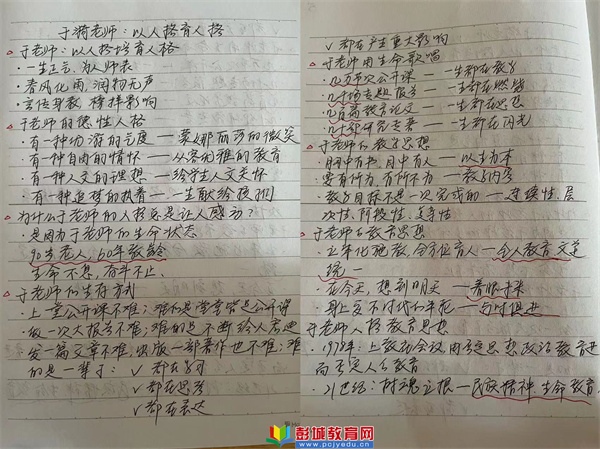 于漪老师：以人格育人格
于老师：以人格培育人格
·一生正气，为人师表
·春风化雨，润物无声
·言传身教 榜样影响
于老师的德性人格
·有一种功 的气度——蒙娜丽莎的微笑
·有一种自由的情怀——从容优雅的教育
·有一种人文的理想——给学生人文关怀
·有一种追求的执着——一生献给孩们
为什么于老师的人格总是让人感动？
·是因为于老师的生命状态
90岁老人，60年教龄
生命不息，奋斗不止
于老师的生存方式
·上一堂公开课不难；难的是堂堂皆是公开课
·做一次大报告不难；难的是不断给人启迪
·发一篇文章不难，出版一部著作也不难；难
的是一辈子：√都在学习
√都在思考
√都在表达
√都在产生重大影响
于老师用生命歌唱
·几千次公开课——一生都在教学
·几千场专题报告——一生都在燃烧
·几百篇教育论文——一生都在思想
·几十部研究专著——一生都在闪光
于老师的教学思想
·目中有书，目中有人——以生为本
·要有所为，有所不为——教学内容
·教学目标不是一次完成的——连续性、层
次性、阶段性、
于老师的教育思想
·立体化施教，全方位育人——全人教育 文道
统一
·在今天，想到明天——着眼于未来
·身上要有时代的年轮——与时俱进
于老师人格教育思想
·1978年：上 会议，由 思想政治教育走
向 人的教育
·21世纪：树魂立根——民族精神、生命教育
彭城教育网
www.pcjyedu.cn